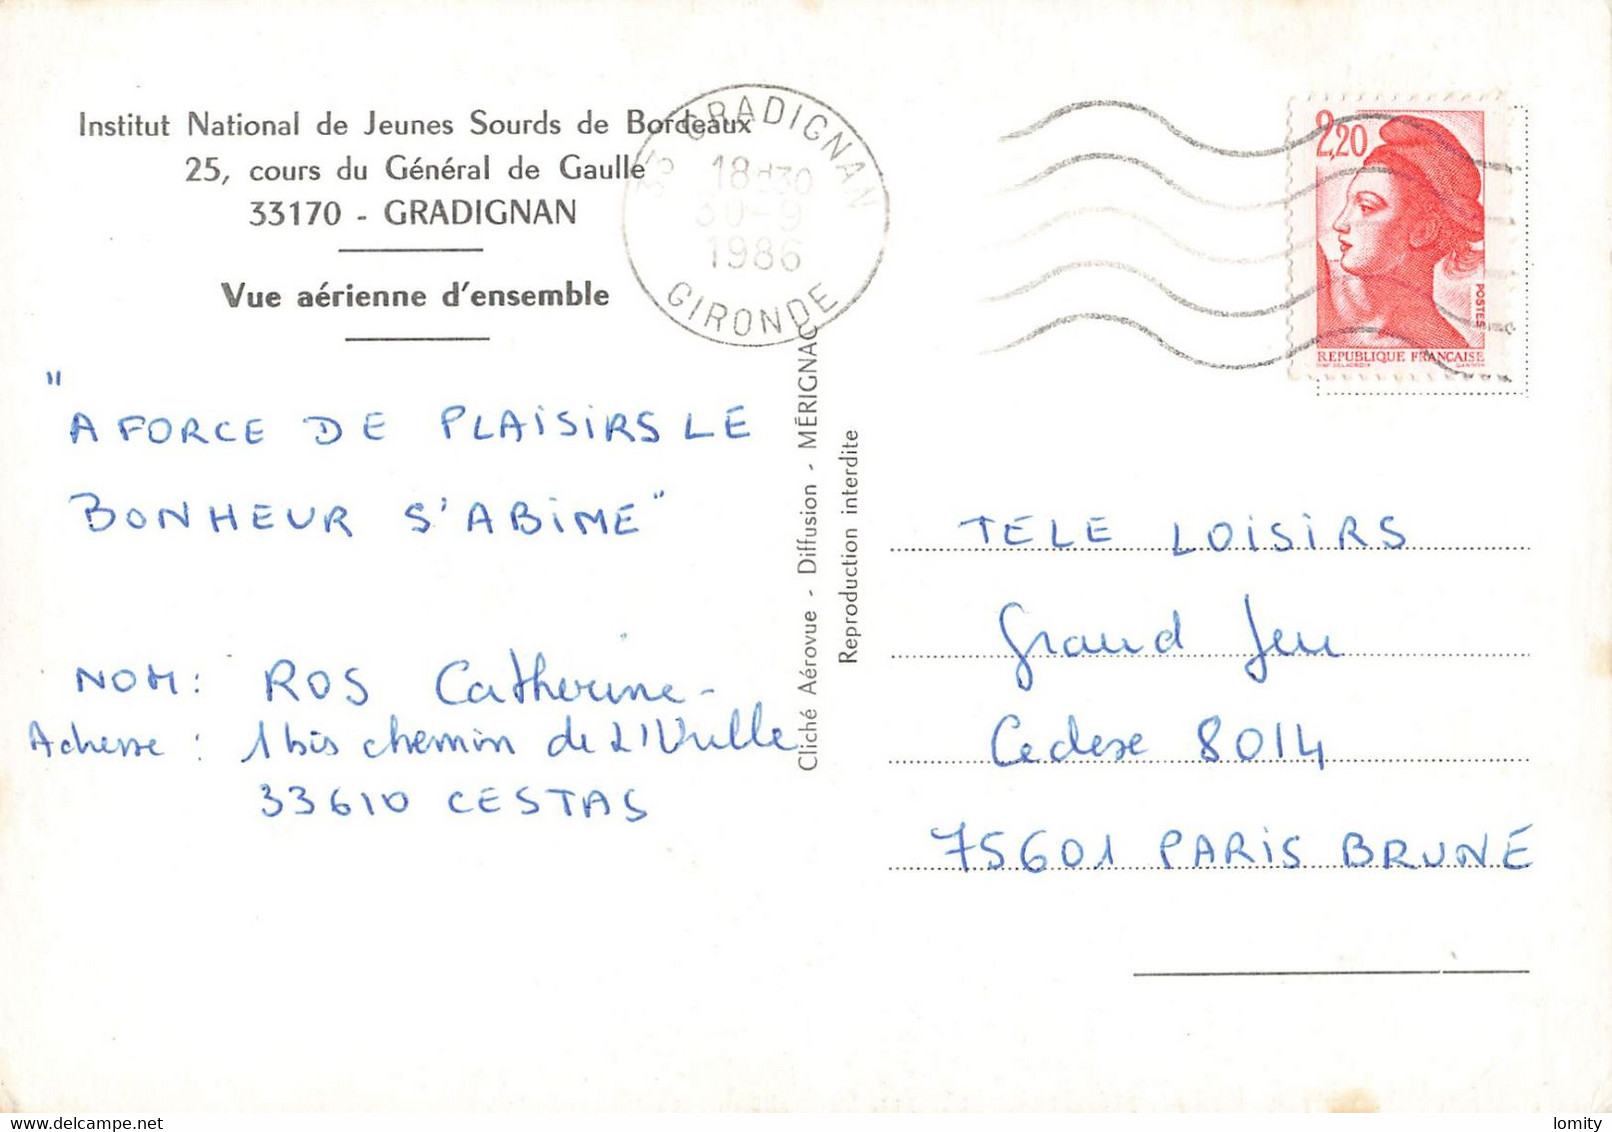 Institut National de Jeunes Sourds de Bordeaux
25, cours du Général de Gaulle
33170 - GRADIGNAN
Vue aérienne d'ensemble
33 GRADIGNAN
18H30
30-9
1986
GIRONDE
2,20
POSTES
REPUBLIQUE FRANÇAISE
"A FORCE DE PLAISIRS LE
BONHEUR S'ABIME"
NOM: ROS Catherine-
Adresse: 1 bis chemin de
33610 CESTAS
Cliché Aérovue - Diffusion - MÉRIGNAC
Reproduction interdite
TELE LOISIRS
Grand Jeu
Cedex 8014
75601 PARIS BRUNE
lomity